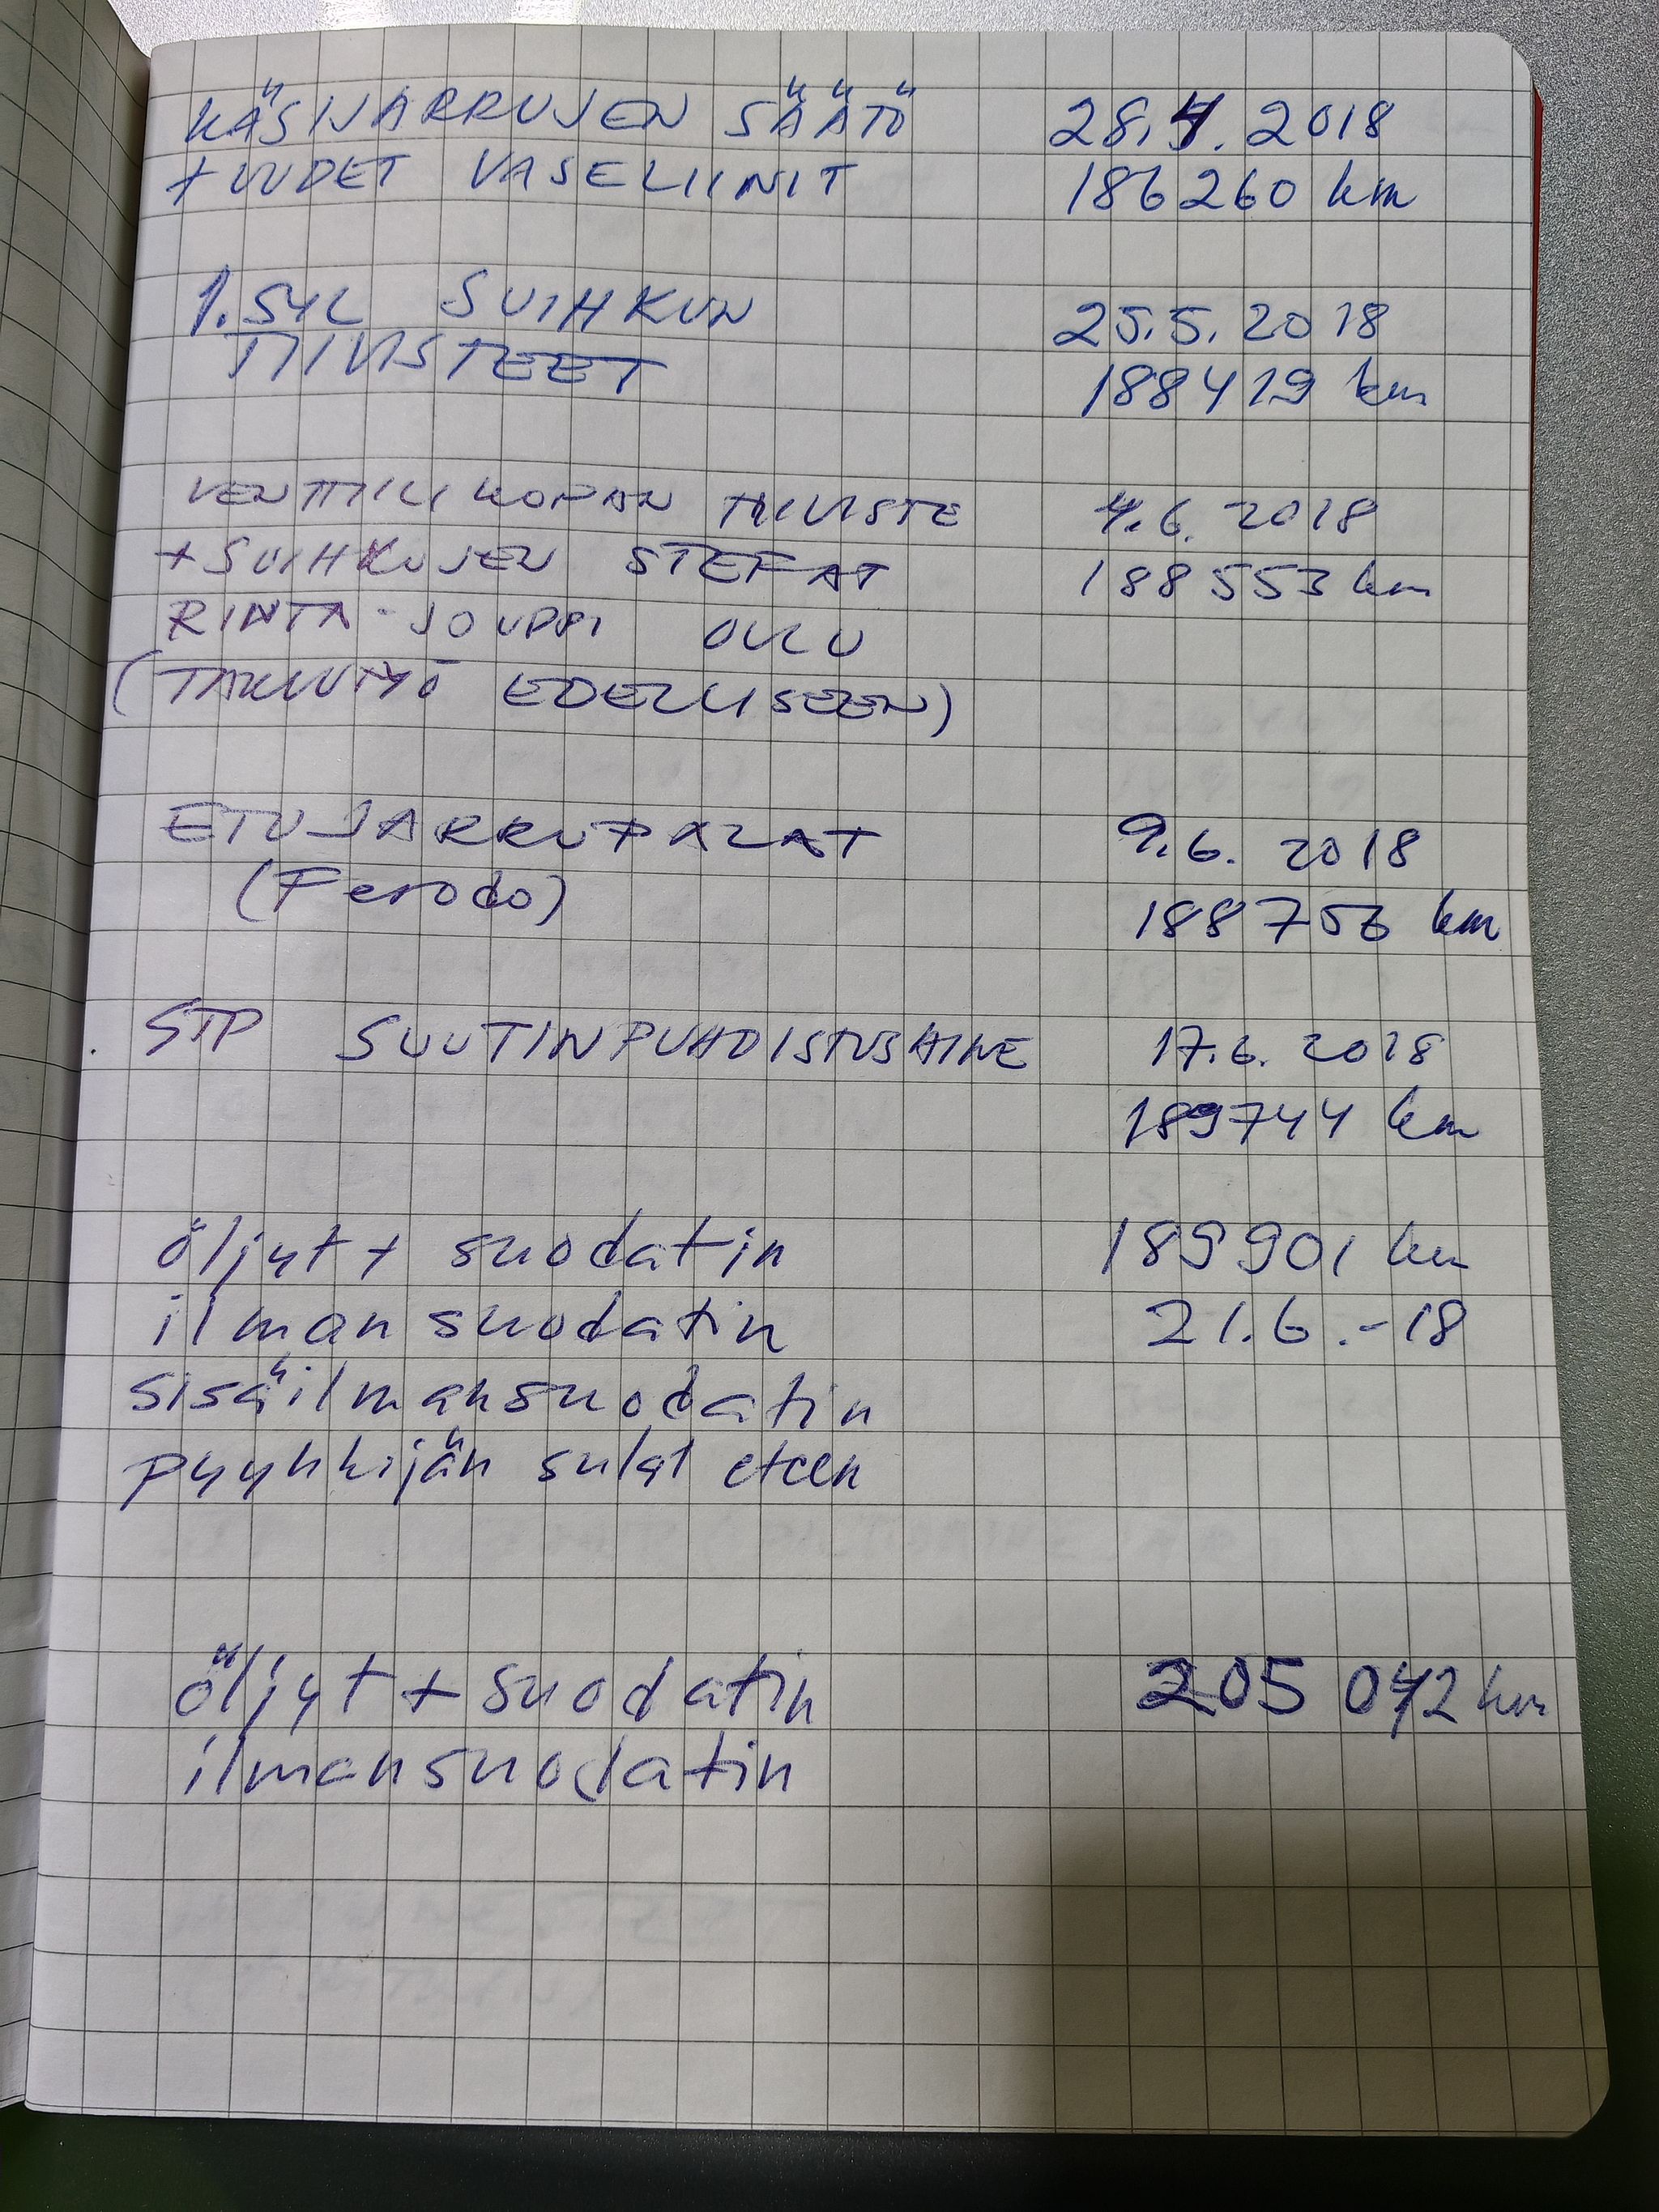 KÄSIJARRUJEN SÄÄTÖ 28.4.2018
+ UUDET VASELIINIT 186260 km
1. SYL SUIHKUN 25.5.2018
TIIVISTEET 188419 km
VENTTIILIKOPAN TIIVISTE 4.6.2018
+ SUIHKUJEN STEFAT 188553 km
RINTA-JOUPPI OULU
(TAKUUTYÖ EDELLISEEN)
ETUJARRUPALAT 9.6.2018
(Ferodo) 188756 km
STP SUUTINPUHDISTUSAINE 17.6.2018
189744 km
öljyt + suodatin 189901 km
ilmansuodatin 21.6.-18
sisäilmansuodatin
pyyhkijän sulat eteen
öljyt + suodatin 205 042 km
ilmansuodatin